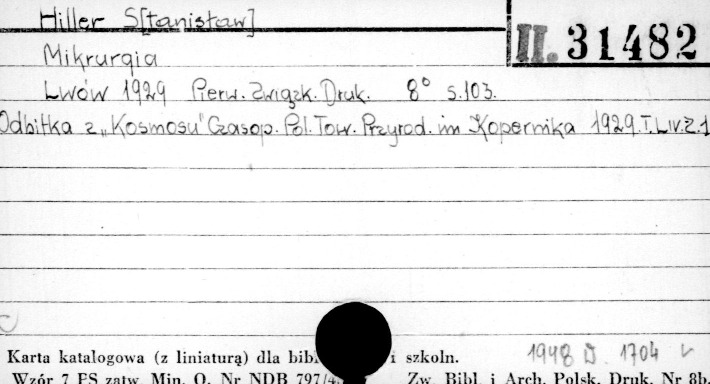 Hiller S[tanisław]
II. 31482
Mikrurgia
Lwów 1929 Pierw. Związk. Druk. 8° s.103.
Odbitka z „Kosmosu" Czasop. Pol. Tow. Przyrod. im Kopernika 1929. T. LIV. Z. 1
1948 D 1704
Karta katalogowa (z liniaturą) dla bibl i szkoln.
Wzór 7 PS zatw. Min. O. Nr NDB 797/4 Zw. Bibl. i Arch. Polsk. Druk. Nr 8b.